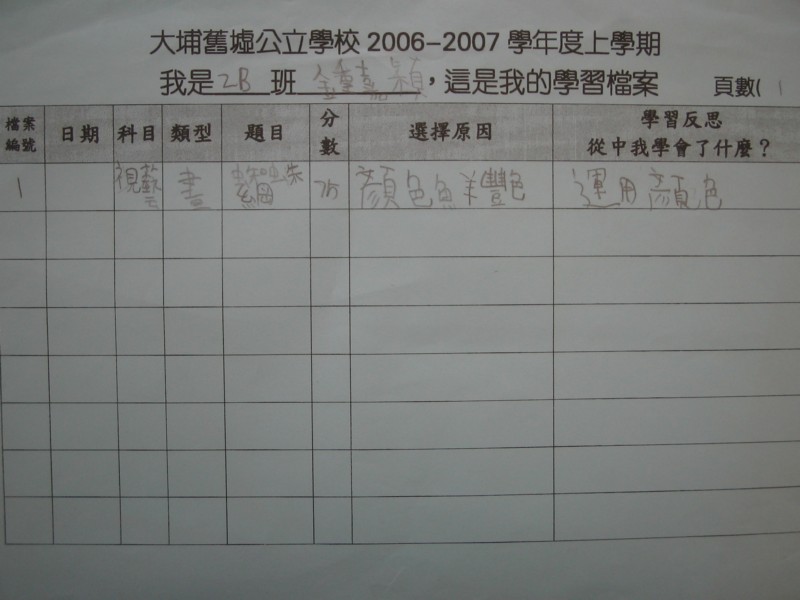 大埔舊墟公立學校 2006-2007 學年度上學期
我是 2B 班 鍾嘉穎，這是我的學習檔案 頁數( 1
檔案編號 日期 科目 類型 題目 分數 選擇原因 學習反思 從中我學會了什麼？
1 視藝 畫 75 顏色魚羊豔色 運用顏色